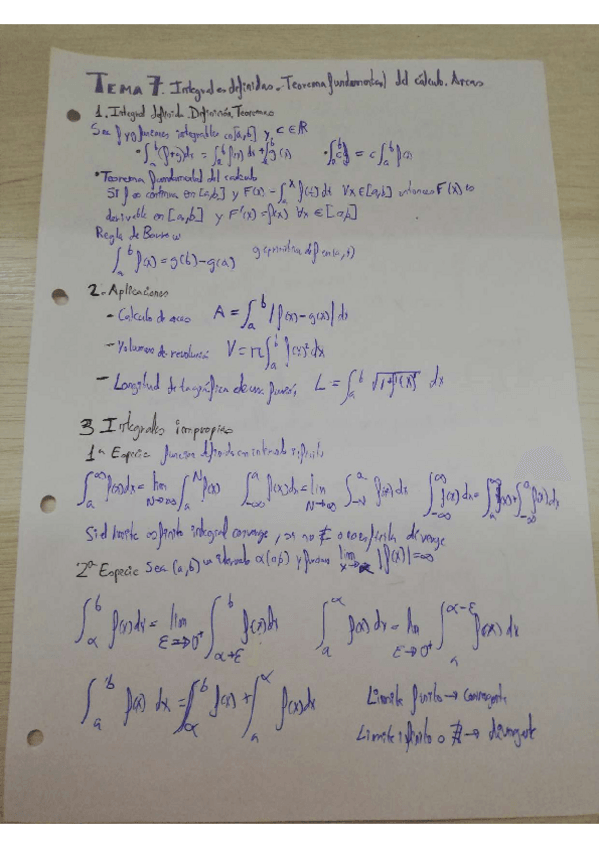 TEMA 7. Integrales definidas. Teorema fundamental del cálculo. Areas
1. Integral definida. Definición. Teoremas
Sea f y g funciones integrables en [a,b] y c ∈ ℝ
• ∫_a^b (f+g)dx = ∫_a^b f(x) dx + ∫_a^b g(x) • ∫_a^b c f = c ∫_a^b f(x)
• Teorema fundamental del calculo
Si f es continua en [a,b] y F(x) = ∫_a^x f(t) dt ∀x ∈ [a,b] entonces F(x) es
derivable en [a,b] y F'(x) = f(x) ∀x ∈ [a,b]
Regla de Barrow
∫_a^b f(x) = g(b) - g(a) g primitiva de f en
2. Aplicaciones
- Calculo de areas A = ∫_a^b |f(x) - g(x)| dx
- Volumen de revolución V = π ∫_a^b f(x)² dx
- Longitud de la gráfica de una función L = ∫_a^b √(1+f'(x)²) dx
3 Integrales impropias
1ª Especie funcion en intervalo infinito
∫_a^∞ f(x)dx = lim N→∞ ∫_a^N f(x) ∫_-∞^a f(x)dx = lim N→∞ ∫_-N^a f(x)dx ∫_-∞^∞ f(x)dx = ∫_a^∞ f(x) + ∫_-∞^a f(x)dx
Si el limite es finito integral converge, si no ∄ o es infinita diverge
2ª Especie Sea (a,b) un intervalo α(a,b) y funcion lim x→α |f(x)| = ∞
∫_α^b f(x)dx = lim ε→0⁺ ∫_α+ε^b f(x)dx ∫_a^α f(x)dx = lim ε→0⁺ ∫_a^α-ε f(x)dx
∫_a^b f(x) dx = ∫_α^b f(x) + ∫_a^α f(x)dx
Limite finito → convergente
Limite infinito o ∄ → divergente